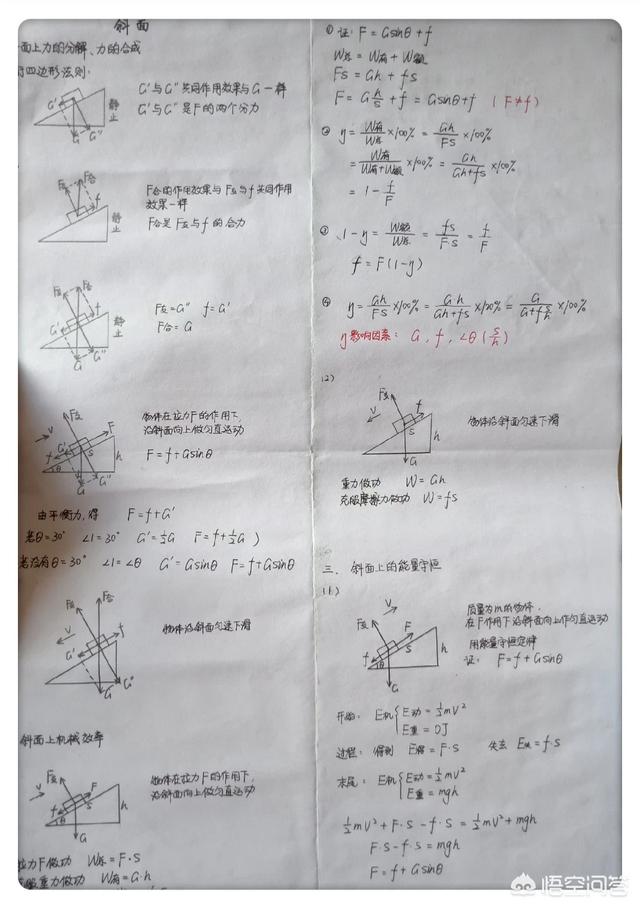 斜面
面上力的分解、力的合成
四边形法则:
G'与G''共同作用效果与G一样
G'与G''是F的两个分力
静止
G
G''
F合的作用效果与F支与f共同作用
效果一样
F合是F支与f的合力
F合
f
静止
F支=G'' f=G'
F合=G
F支
F合
f
G'
G
G''
静止
物体在拉力F的作用下,
沿斜面向上做匀直运动
F=f+Gsinθ
F支
V
F
G'
f
S
h
θ
G
G''
由平衡力,得 F=f+G'
若θ=30° ∠1=30° G'=½G F=f+½G )
若没有θ=30° ∠1=∠θ G'=Gsinθ F=f+Gsinθ
物体沿斜面匀速下滑
F支
F合
V
f
G'
G
G''
斜面上机械效率
物体在拉力F的作用下,
沿斜面向上做匀直运动
F支
V
F
f
S
h
θ
G
拉力F做功 W总=F·S
克服重力做功 W有=G·h
① 证: F=Gsinθ+f
W总=W有+W额
FS=Gh+fS
F=G h/S +f=Gsinθ+f (F≠f)
② η=W有/W总×100%=Gh/FS×100%
=W有/(W有+W额)×100%=Gh/(Gh+fS)×100%
=1-f/F
③ 1-η=W额/W总=fS/F·S=f/F
f=F(1-η)
④ η=Gh/FS×100%=Gh/(Gh+fS)×100%=G/(G+f S/h)×100%
η影响因素: G, f, ∠θ(S/h)
(2)
物体沿斜面匀速下滑
F支
V
f
S
h
G
重力做功 W=Gh
克服摩擦力做功 W=fS
三、斜面上的能量守恒
(1)
质量为m的物体,
在F作用下沿斜面向上作匀直运动
用能量守恒定律
证: F=f+Gsinθ
F支
V
F
f
S
h
θ
G
开始: E机{E动=½mV²
E重=0J
过程: 得到 E得=F·S 失去 E失=f·S
末尾: E机{E动=½mV²
E重=mgh
½mV²+F·S-f·S=½mV²+mgh
F·S-f·S=mgh
F=f+Gsinθ
悟空问答